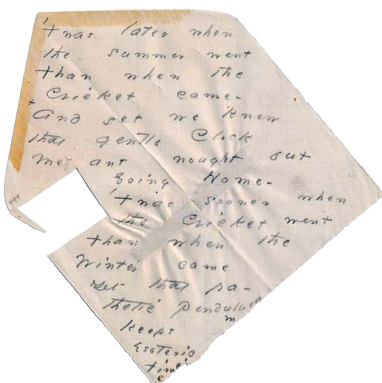 'Twas later when
the summer went
than when the
Cricket came -
And yet we knew
that gentle Clock
meant nought but
Going Home -
'Twas sooner when
the Cricket went
than when the
Winter came
Yet that pa-
thetic Pendulum
Keeps
Esoteric
Time